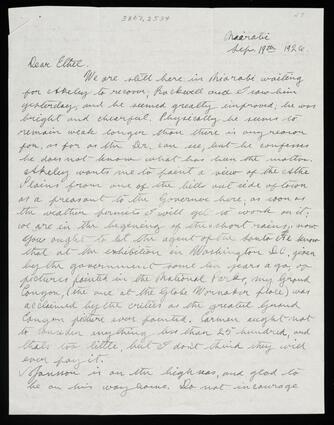 3807.2534
47
Niarobi
Sep. 19th 1926.
Dear Ethel.
We are still here in Niarobi waiting
for Akeley to recover, Rockwell and I saw him
yesterday, and he seemed greatly improved, he was
bright and cheerful. Physically he seems to
remain weak longer than there is any reason
for, as far as the Dr. can see, but he confesses
he does not know what has been the matter.
Akeley wants me to paint a view of the Athi
Plains from one of the hills out side of town
as a present to the Governor here, as soon as
the weather permits I will get to work on it,
we are in the beginning of the short rains, now
you ought to let the agent of the Santa Fe know
that at the exhibition in Washington D.C. given
by the government some ten years ago, of
pictures painted in the National Parks, my Grand
Canyon, (the one at the Globe Wernicker place), was
acclaimed by the critics as the greatest Grand
Canyon picture ever painted. Carmen ought not
to consider anything less than 25 hundred, and
thats too little, but I don't think they will
ever pay it.
Jansson is on the high seas, and glad to
be on his way home. Do not encourage